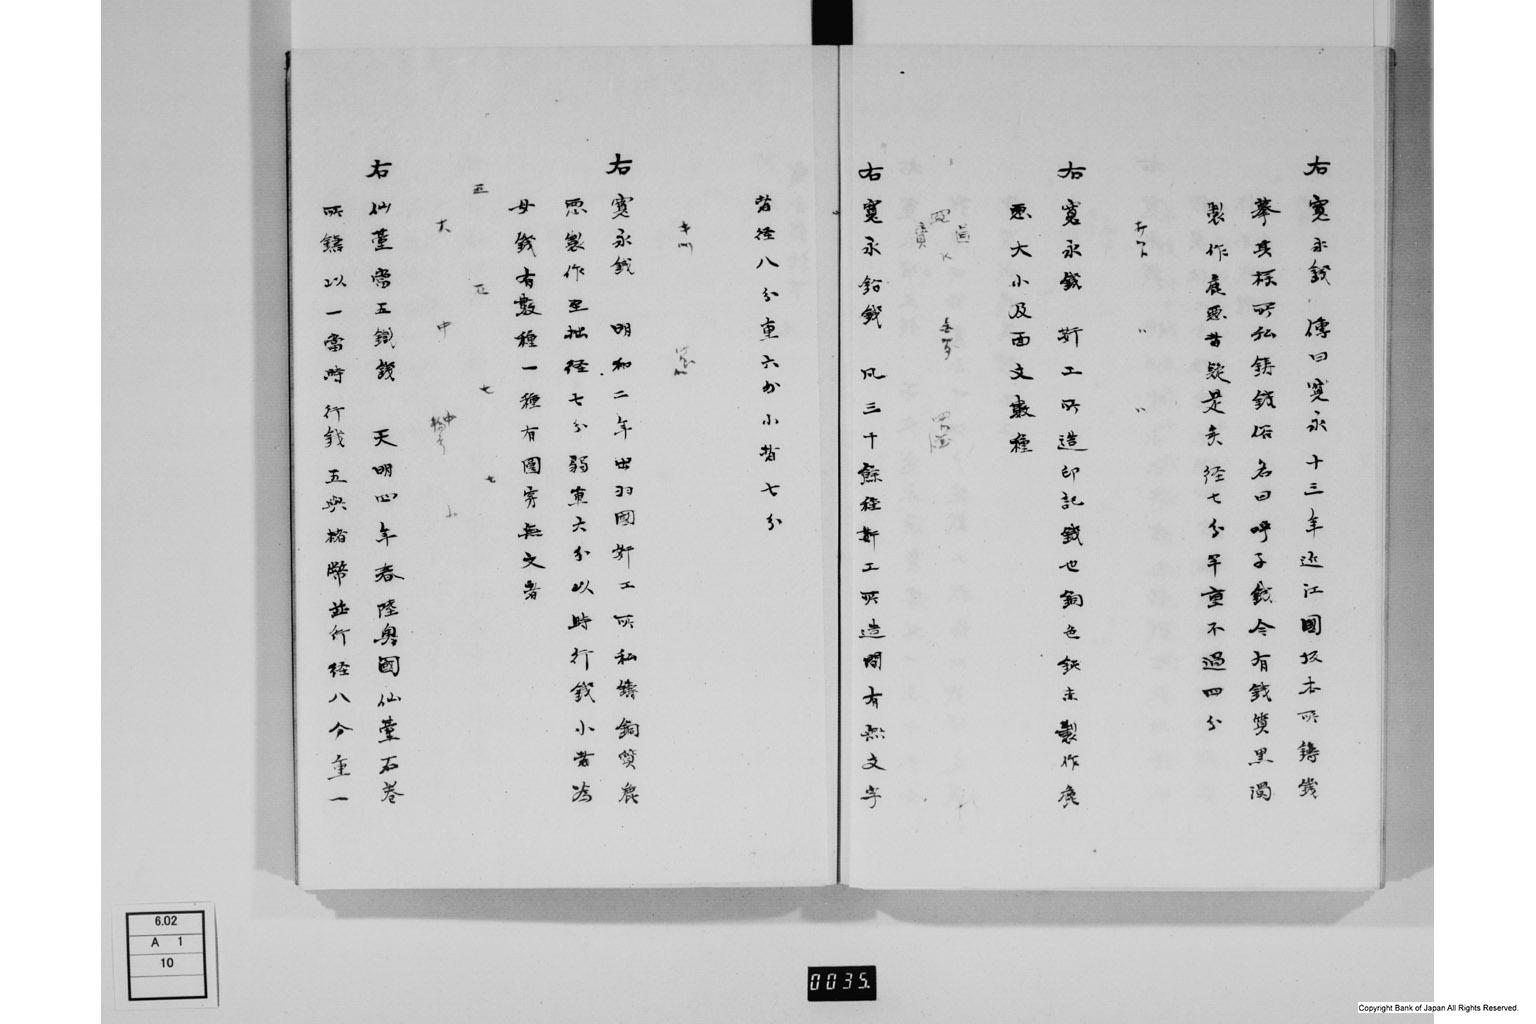 右寛永錢 傳曰寛永十三年近江國坂本所鑄錢
摹其様所私鋳錢俗名曰呼子錢今有錢質黒濁
製作麁悪昔疑是矣径七分半重不過四分
右寛永錢 斯工所造印記錢也銅色鉄未製作麁
悪大小及面文數種
右寛永鉛錢 凡三十餘種斯工所造間有無文字
背径八分重六分小者七分
右寛永錢 明和二年出羽國斯工所私鑄銅質麁
悪製作至拙径七分弱重六分以時行錢小者為
母錢有數種一種有圓穿無文者
五
大
五
中
七
七
小
右仙薹當五鐵錢 天明四年春陸奥國仙薹石巻
所鑄以一當時行錢五與楮幣並行径八分重一
6.02
A 1
10
0035.
Copyright Bank of Japan All Rights Reserved.